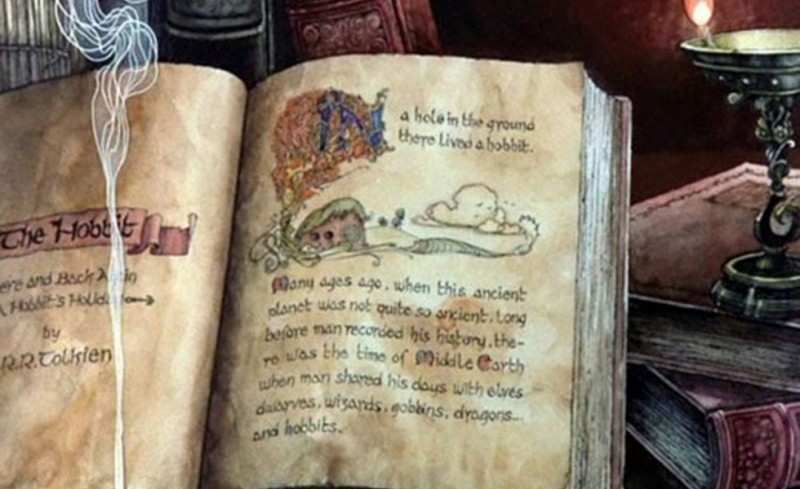 The Hobbit
ere and Back Again
A Hobbit's Holiday
by
R.R.Tolkien
IN
a hole in the ground
there lived a hobbit.
Many ages ago, when this ancient
planet was not quite so ancient, long
before man recorded his history, the-
re was the time of Middle Earth
when man shared his days with elves
dwarves, wizards, goblins, dragons...
and hobbits.